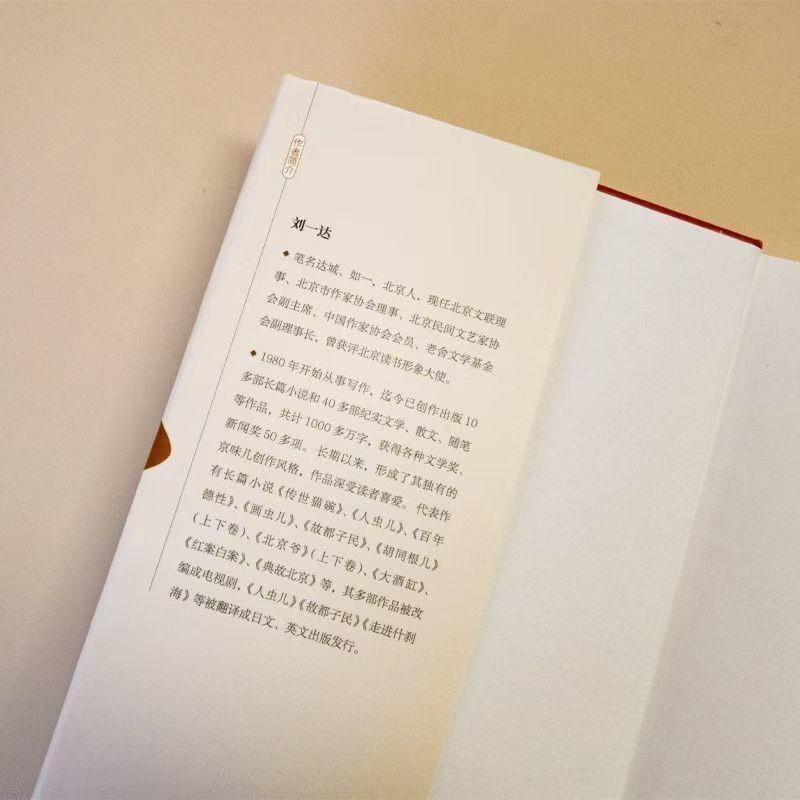 作者简介
刘一达
◆ 笔名达城、如一，北京人，现任北京文联理
事、北京市作家协会理事、北京民间文艺家协
会副主席、中国作家协会会员、老舍文学基金
会副理事长，曾获评北京读书形象大使。
◆ 1980 年开始从事写作，迄今已创作出版 10
多部长篇小说和 40 多部纪实文学、散文、随笔
等作品，共计 1000 多万字，获得各种文学奖、
新闻奖 50 多项。长期以来，形成了其独有的
京味儿创作风格，作品深受读者喜爱。代表作
有长篇小说《传世猫碗》、《人虫儿》、《百年
德性》、《画虫儿》、《故都子民》、《胡同根儿》
（上下卷）、《北京爷》（上下卷）、《大酒缸》、
《红案白案》、《典故北京》等，其多部作品被改
编成电视剧，《人虫儿》《故都子民》《走进什刹
海》等被翻译成日文、英文出版发行。